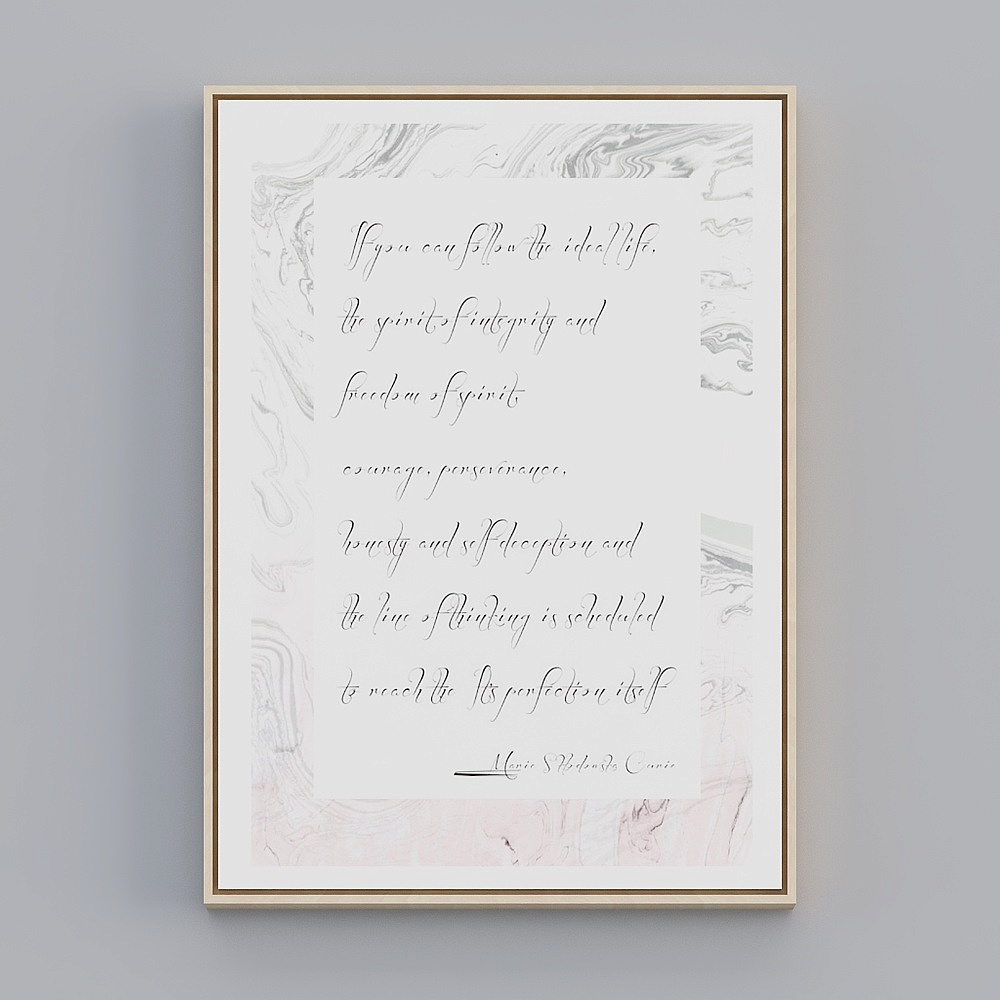 If you can follow the ideal life,
the spirit of integrity and
freedom of spirit,
courage, perseverance,
honesty and self deception and
the line of thinking is scheduled
to reach the It's perfection itself
Marie Skłodowska Curie